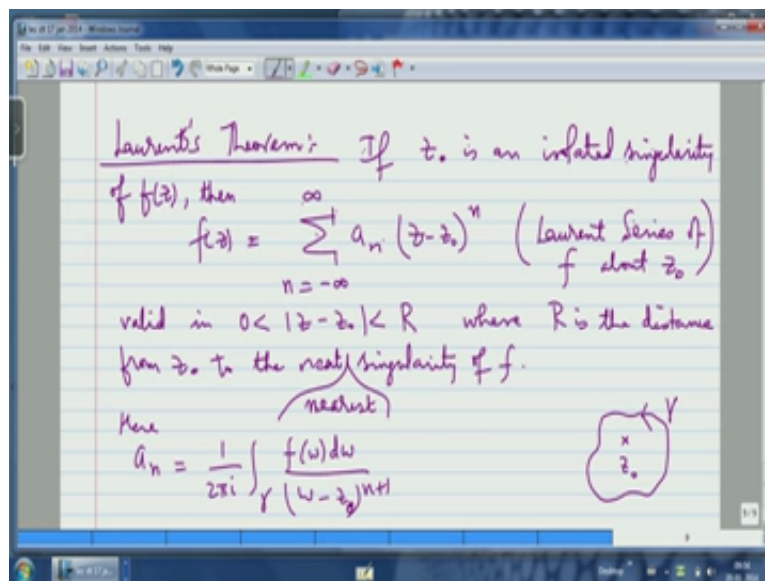 lec dt 17 jan 2014 - Windows Journal
File Edit View Insert Actions Tools Help
Whole Page
Laurent's Theorem: If z₀ is an isolated singularity
of f(z), then
f(z) = ∑_{n=-∞}^{∞} aₙ (z-z₀)ⁿ (Laurent Series of f about z₀)
valid in 0 < |z-z₀| < R where R is the distance
from z₀ to the next singularity of f.
nearest
Here
aₙ = 1/2πi ∫_γ f(w)dw/(w-z₀)ⁿ⁺¹
γ
z₀
9/9